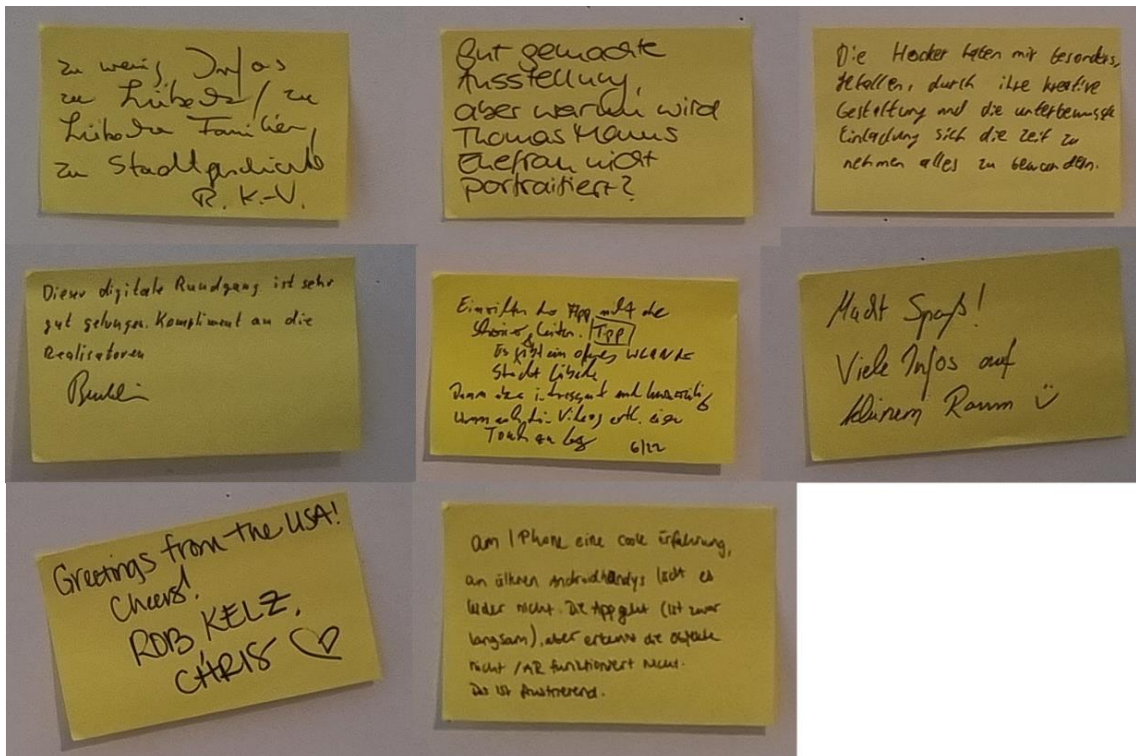 zu wenig Infos
zu Lübeck / zu
Lübecker Familien,
zu Stadtgeschichte
R. K.-V.
Gut gemachte
Ausstellung,
aber warum wird
Thomas Manns
Ehefrau nicht
portraitiert?
Die Hocker haben mir besonders,
gefallen, durch ihre kreative
Gestaltung und die unterbewusste
Einladung sich die Zeit zu
nehmen alles zu bewundern.
Dieser digitale Rundgang ist sehr
gut gelungen. Kompliment an die
Realisatoren
der App mit
Tipp
Es gibt ein offenes WLAN der
Stadt Lübeck
Dann interessant und kurzweilig
6/22
Macht Spaß!
Viele Infos auf
kleinem Raum
Greetings from the USA!
Cheers!
ROB KELZ,
CHRIS ♡
am IPhone eine coole Erfahrung,
an älteren Androidhandys lädt es
leider nicht. Die App geht (ist zwar
langsam), aber erkennt die Objekte
nicht / AR funktioniert nicht.
Das ist frustrierend.